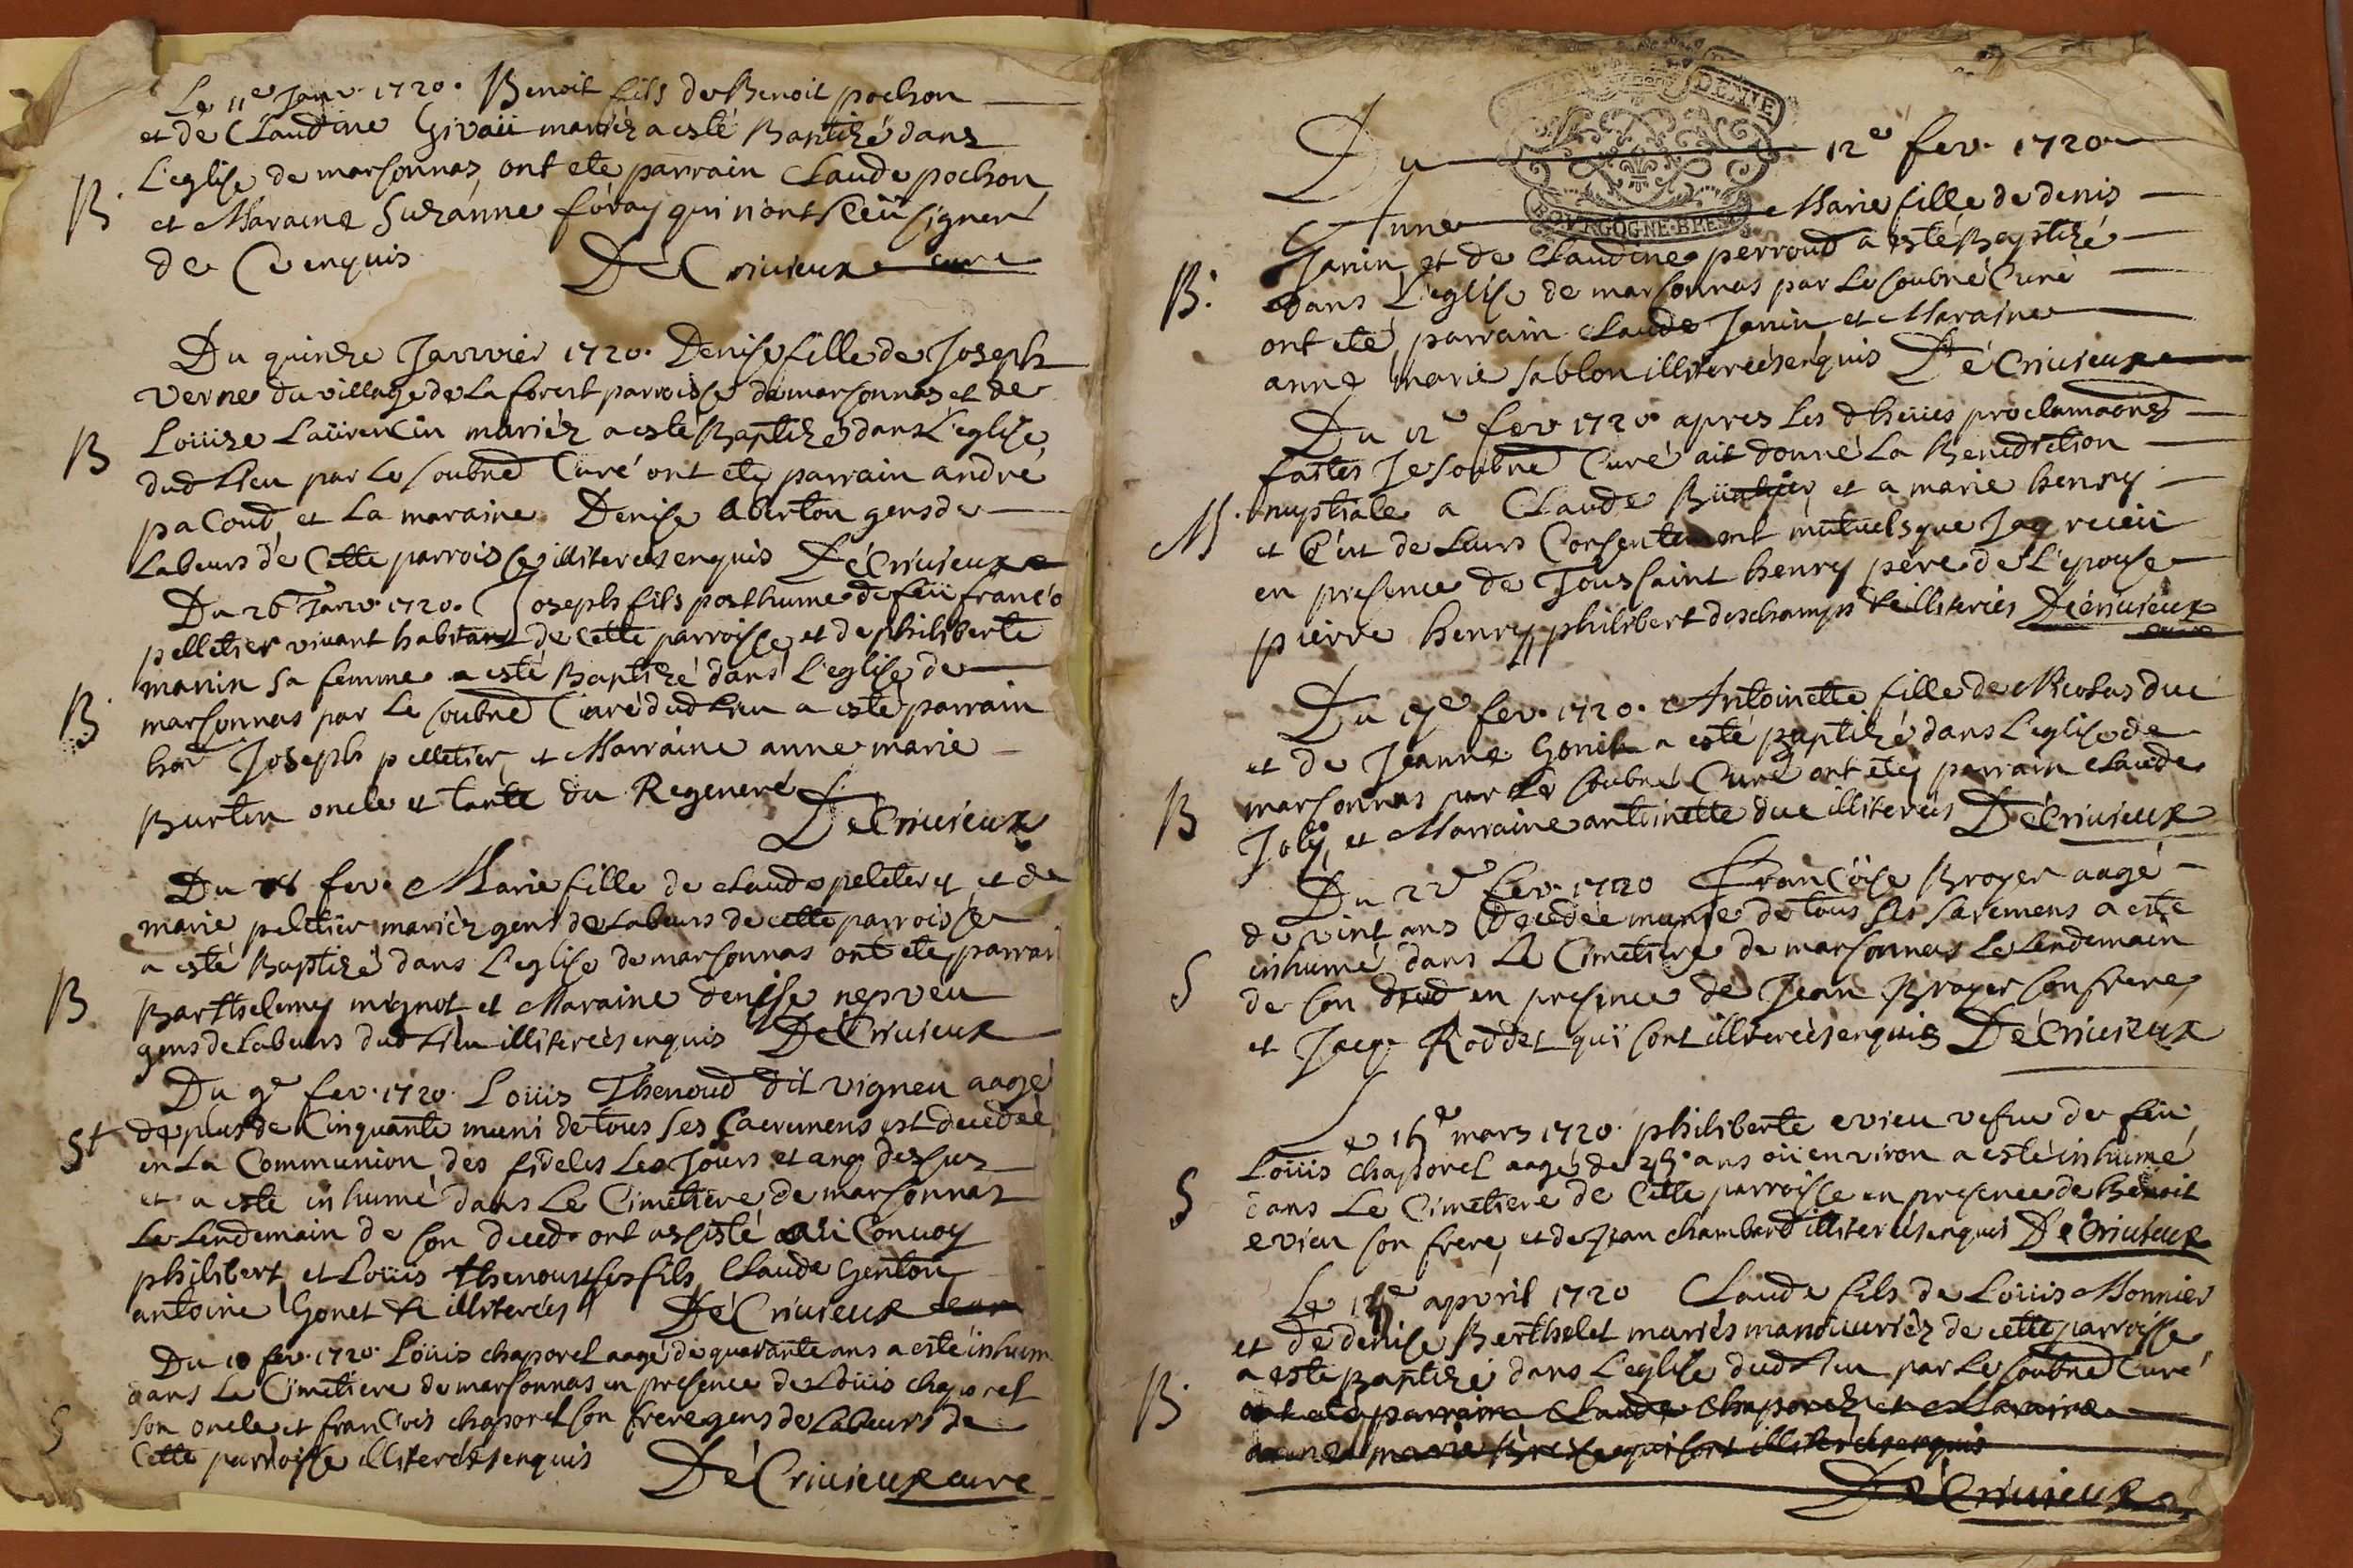 Le 11e Janv. 1720. Benoit fils de Benoit pochon
et de Claudine mariéz a esté Baptizé dans
L'eglise de marsonnas, ont ete parrain Claude pochon
B. et Maraine Suzanne foray qui n'ont sceü signer
de Ce enquis DeCriuieux curé
Du quinze Janvier 1720. Denise fille de Joseph
verne du village de La forest parroisse de marsonnas et de
B Loüize Laürencin mariéz a esté Baptizé dans L'eglise
dud Lieu par Le soubné Curé ont eté parrain andré
pacoud et La maraine Denise aberton gens de
Labeurs de Cette parroisse illiterés enquis DéCriuieux
Du 26 Janv. 1720. Joseph fils posthume de feü franco
pelletier vivant habitant de Cette parroisse et de philiberte
manin sa femme a esté Baptizé dans L'eglise de
B. marsonnas par Le soubné Curé dud Lieu a esté parrain
hor Joseph pelletier, et Marraine anne marie
Burtin oncle et tante du Regeneré
DéCriuieux
Du fev. Marie fille de claude peletier et de
marie peletier mariéz gens de Labeurs de cette parroisse
a esté Baptizé dans L'eglise de marsonnas ont eté parrai
B. Barthelemy mignot et Maraine denise nepveu
gens de Labeurs dud Lieu illiterés enquis DéCriuieux
Du 9e fev. 1720. Loüis Thenoud dit vigneu aagé
St de plus de Cinquante muni de tous ses sacremens est decedéé
en La Communion des fideles Les Jours et an dessus
et a esté inhumé dans Le Cimetiere de marsonnas
Le Lendemain de son deced. ont assisté au Convoy
philibert et Loüis thenoud ses fils, Claude Genton
antoine Gonet illiterés DéCriuieux curé
Du 10 fev. 1720. Loüis chaporel aagé de quarante ans a esté inhum
dans Le Cimetiere de marsonnas en presence de Loüis chaporel
S son oncle et francois chaporel son frere gens de Labeurs de
Cette parroisse illiterés enquis
DéCriuieux curé
Du 12e fev. 1720
Anne Marie fille de denis
Janin et de Claudine perroud a esté Baptizé
B. dans L'eglise de marsonnas par Le soubné Curé
ont eté parrain Claude Janin et Maraine
anne marie sablon illiterés enquis DéCriuieux
Du 12e fev 1720 apres Les dheües proclamaons
faites Je soubné Curé ait donné La Benediction
M. nuptiale a Claude et a marie henry
et C'eut de Leurs Consentement mutuels que Jay receü
en presence de Toussaint henry pere de L'epouse
pierre henry, philibert deschamps illiterés DéCriuieux
curé
Du 17e fev. 1720. Antoinette fille de Nicolas duc
et de Jeanne Gonet a esté Baptizé dans L'eglise de
marsonnas par Le soubné Curé ont eté parrain claude
B Joly, et Marraine antoinette duc illiterés DéCriuieux
Du 22e fev. 1720 Françoise Broyer aagé
de vint ans Decedée munie de tous ses sacremens a esté
inhumé dans Le Cimetiere de marsonnas Le Lendemain
S de son deced en presence de Jean Broyer son frere
et Jacqs Roddet qui sont illiterés enquis DéCriuieux
Le mars 1720. philiberte evieu vefue de feü
Loüis chaporel aagé de ans oü environ a esté inhumé
S dans Le Cimetiere de Cette parroisse en presence de Benoit
evieu son frere, et de Jean chambard illiterés enquis DéCriuieux
Le apvril 1720 Claude fils de Loüis Monnier
et de denise Berthelet mariés manouuriéz de cette parroisse
a esté Baptizé dans L'eglise dud Lieu par Le soubné Curé
B. ont eté parrain Claude Chaporel et Maraine
anne marie qui sont illiterés enquis
DéCriuieux
BOURGOGNE·BRESSE